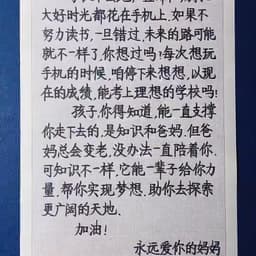 大好时光都花在手机上,如果不
努力读书,一旦错过,未来的路可能
就不一样了,你想过吗!每次想玩
手机的时候,咱停下来想想,以现
在的成绩,能考上理想的学校吗!
孩子,你得知道,能一直支撑
你走下去的,是知识和爸妈.但爸
妈总会变老,没办法一直陪着你.
可知识不一样,它能一辈子给你力
量.帮你实现梦想.助你去探索
更广阔的天地.
加油!
永远爱你的妈妈